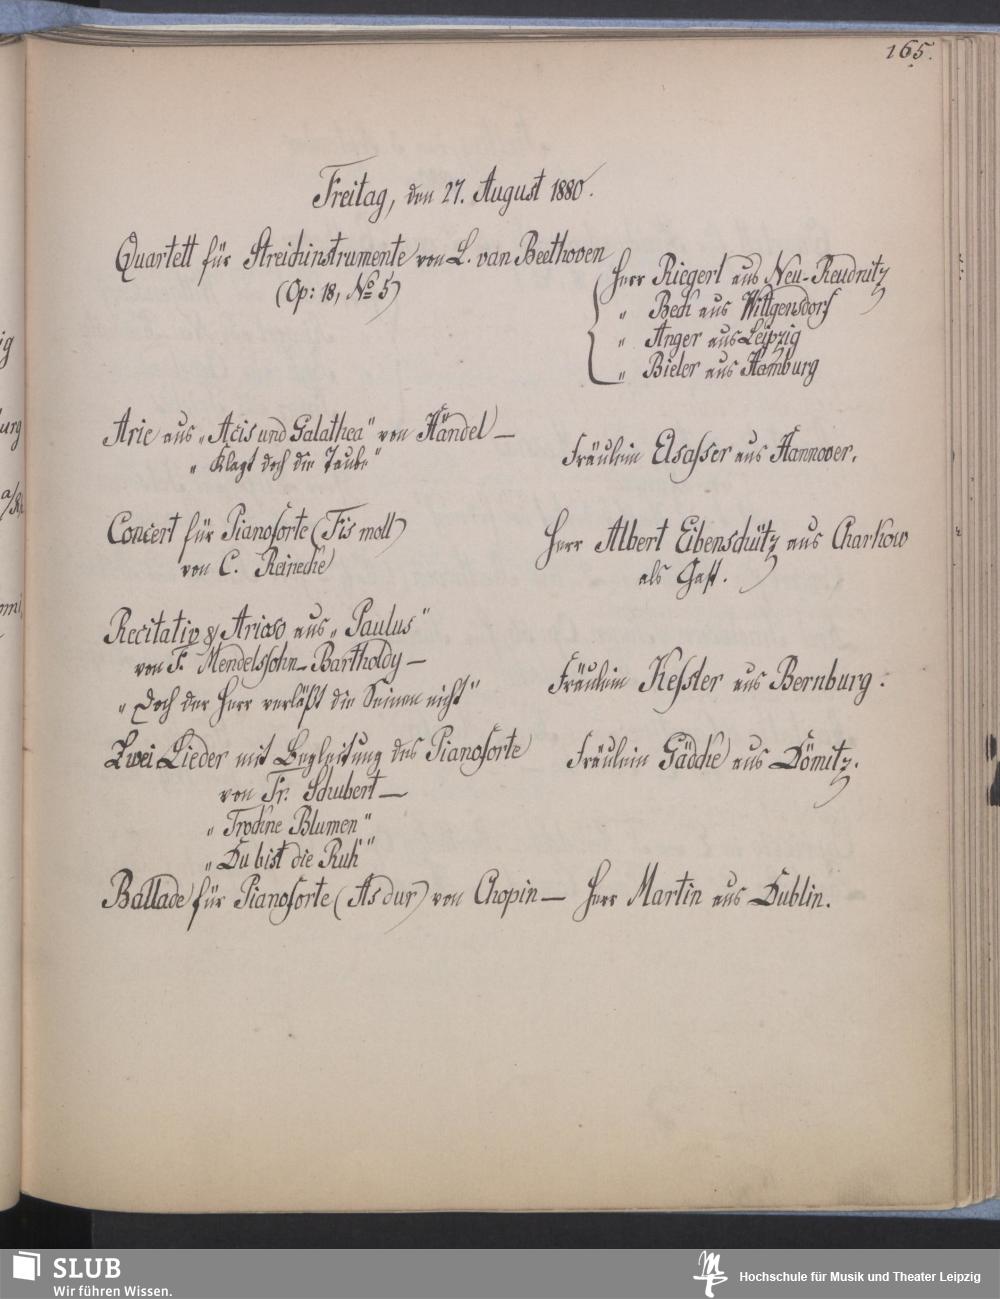 165.
Freitag, den 27. August 1880.
Quartett für Streichinstrumente von L. van Beethoven
(Op: 18, No 5)
Herr Riegerl aus Neu-Reudnitz
" Beck aus Wittgensdorf
" Anger aus Leipzig
" Bieler aus Hamburg
Arie aus „Acis und Galathea" von Händel —
„Klagt doch die Taube"
Fräulein Elsasser aus Hannover.
Concert für Pianoforte (Fis moll)
von C. Reinecke
Herr Albert Eibenschütz aus Charkow
als Gast.
Recitativ & Arioso aus „Paulus"
von F. Mendelssohn-Bartholdy —
„Doch der Herr verläßt die Seinen nicht"
Fräulein Kessler aus Bernburg.
Zwei Lieder mit Begleitung des Pianoforte
von Fr. Schubert —
„Trockne Blumen"
„Du bist die Ruh'"
Fräulein Gädcke aus Dömitz.
Ballade für Pianoforte (As dur) von Chopin — Herr Martin aus Dublin.
SLUB
Wir führen Wissen.
Hochschule für Musik und Theater Leipzig